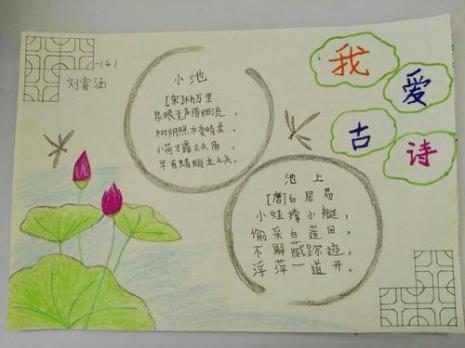 刘睿涵
我
爱
古
诗
小池
[宋]杨万里
泉眼无声惜细流，
树阴照水爱晴柔。
小荷才露尖尖角，
早有蜻蜓立上头。
池上
[唐]白居易
小蛙撑小艇，
偷采白莲回。
不解藏踪迹，
浮萍一道开。